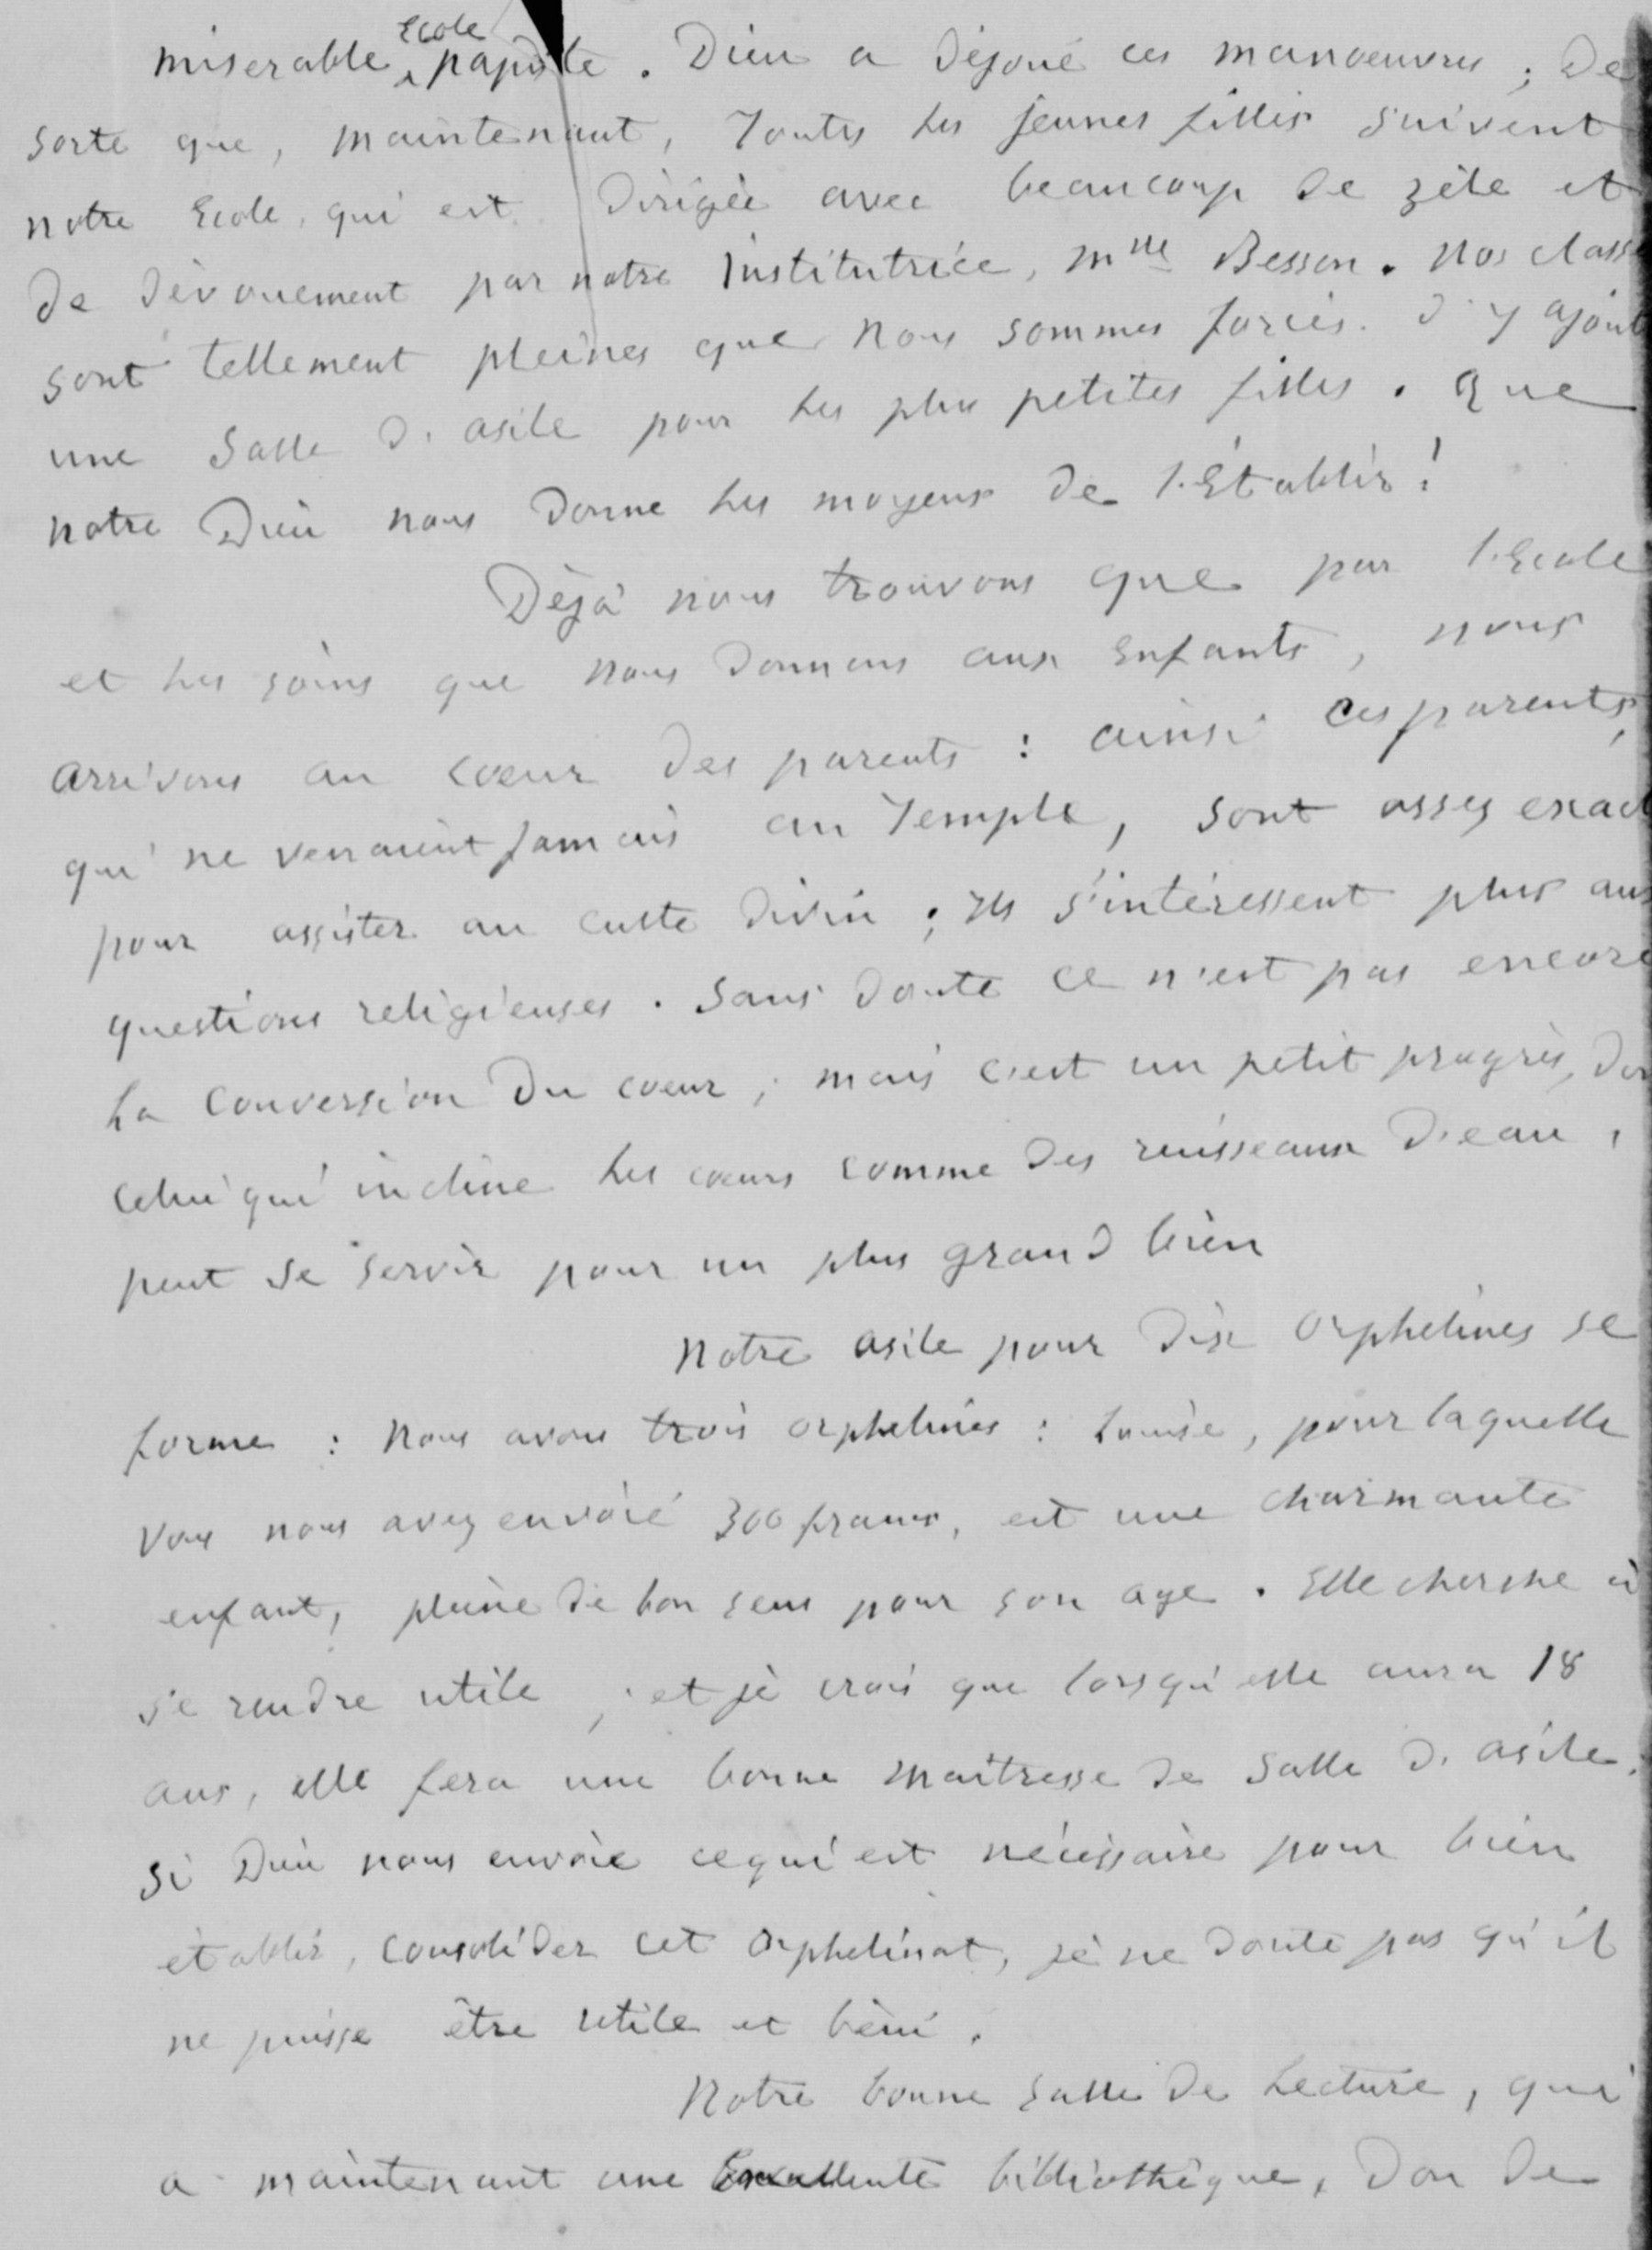 miserable Ecole papiste. Dieu a déjoué ces manoeuvres ; De
sorte que, maintenant, Toutes Les jeunes filles suivent
notre Ecole, qui est Dirigée avec beaucoup De zèle et
De Dévouement par notre Institutrice, Mlle Besson. Nos class
sont tellement pleines que Nous sommes forcés d'y ajout
une Salle D'asile pour Les plus petites filles. Que
notre Dieu nous Donne Les moyens De l'Etablir !
Déjà nous trouvons que par l'Ecole
et Les soins que Nous Donnons aux Enfants, nous
arrivons au coeur Des parents : ainsi Ces parents,
qui ne venaient jamais au Temple, sont assez exact
pour assister au culte Divin ; Ils s'intéressent plus aux
questions religieuses. Sans Doute ce n'est pas encore
La Conversion Du coeur ; mais c'est un petit progrès, Don
Celui qui incline Les coeurs comme Des ruisseaux D'eau,
peut se servir pour un plus granD bien
Notre asile pour Dix Orphelines se
forme : Nous avons trois orphelines : Louise, pour laquelle
Vous nous avez envoié 300 francs, est une charmante
enfant, pleine De bon sens pour son age. Elle cherche à
se rendre utile ; et je crois que lorsqu'elle aura 18
ans, elle fera une bonne Maîtresse De Salle D'asile.
Si Dieu nous envoie ce qui est nécessaire pour bien
établir, consoliDer cet Orphelinat, je ne Doute pas qu'il
ne puisse être utile et béni.
Notre bonne salle De Lecture, qui
a maintenant une Excellente bibliothèque, Don De